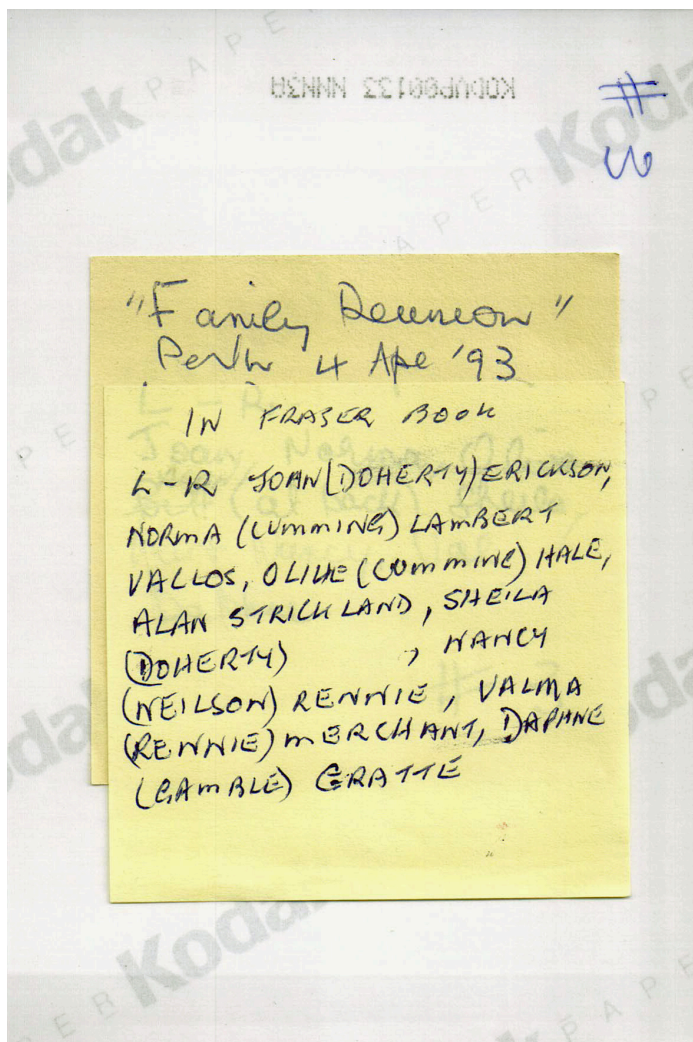 KODVP00133 NNN3A
# 3
"Family Reunion"
Perth 4 Apr '93
IN FRASER BOOK
L-R JOAN (DOHERTY) ERICKSON,
NORMA (CUMMING) LAMBERT
VALLOS, OLIVE (CUMMING) HALE,
ALAN STRICKLAND, SHEILA
(DOHERTY) , NANCY
(NEILSON) RENNIE, VALMA
(RENNIE) MERCHANT, DAPHNE
(GAMBLE) GRATTE
Kodak
PAPER